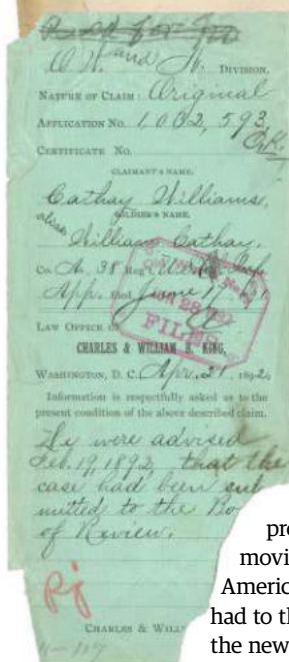 O. W. and N. DIVISION.
NATURE OF CLAIM: Original
APPLICATION NO. 1,032,593
CERTIFICATE NO.
CLAIMANT'S NAME.
Cathay Williams,
alias SOLDIER'S NAME.
William Cathay.
Co. A, 38 Reg't U.S.
App. filed June 1
FILED
LAW OFFICE OF
CHARLES & WILLIAM B. KING,
WASHINGTON, D. C. Apr. 21, 1892
Information is respectfully asked as to the
present condition of the above described claim.
We were advised
Feb. 19, 1892, that the
case had been sub
mitted to the Bo
of Review.
CHARLES & WILL
pr
movi
Americ
had to th
the new